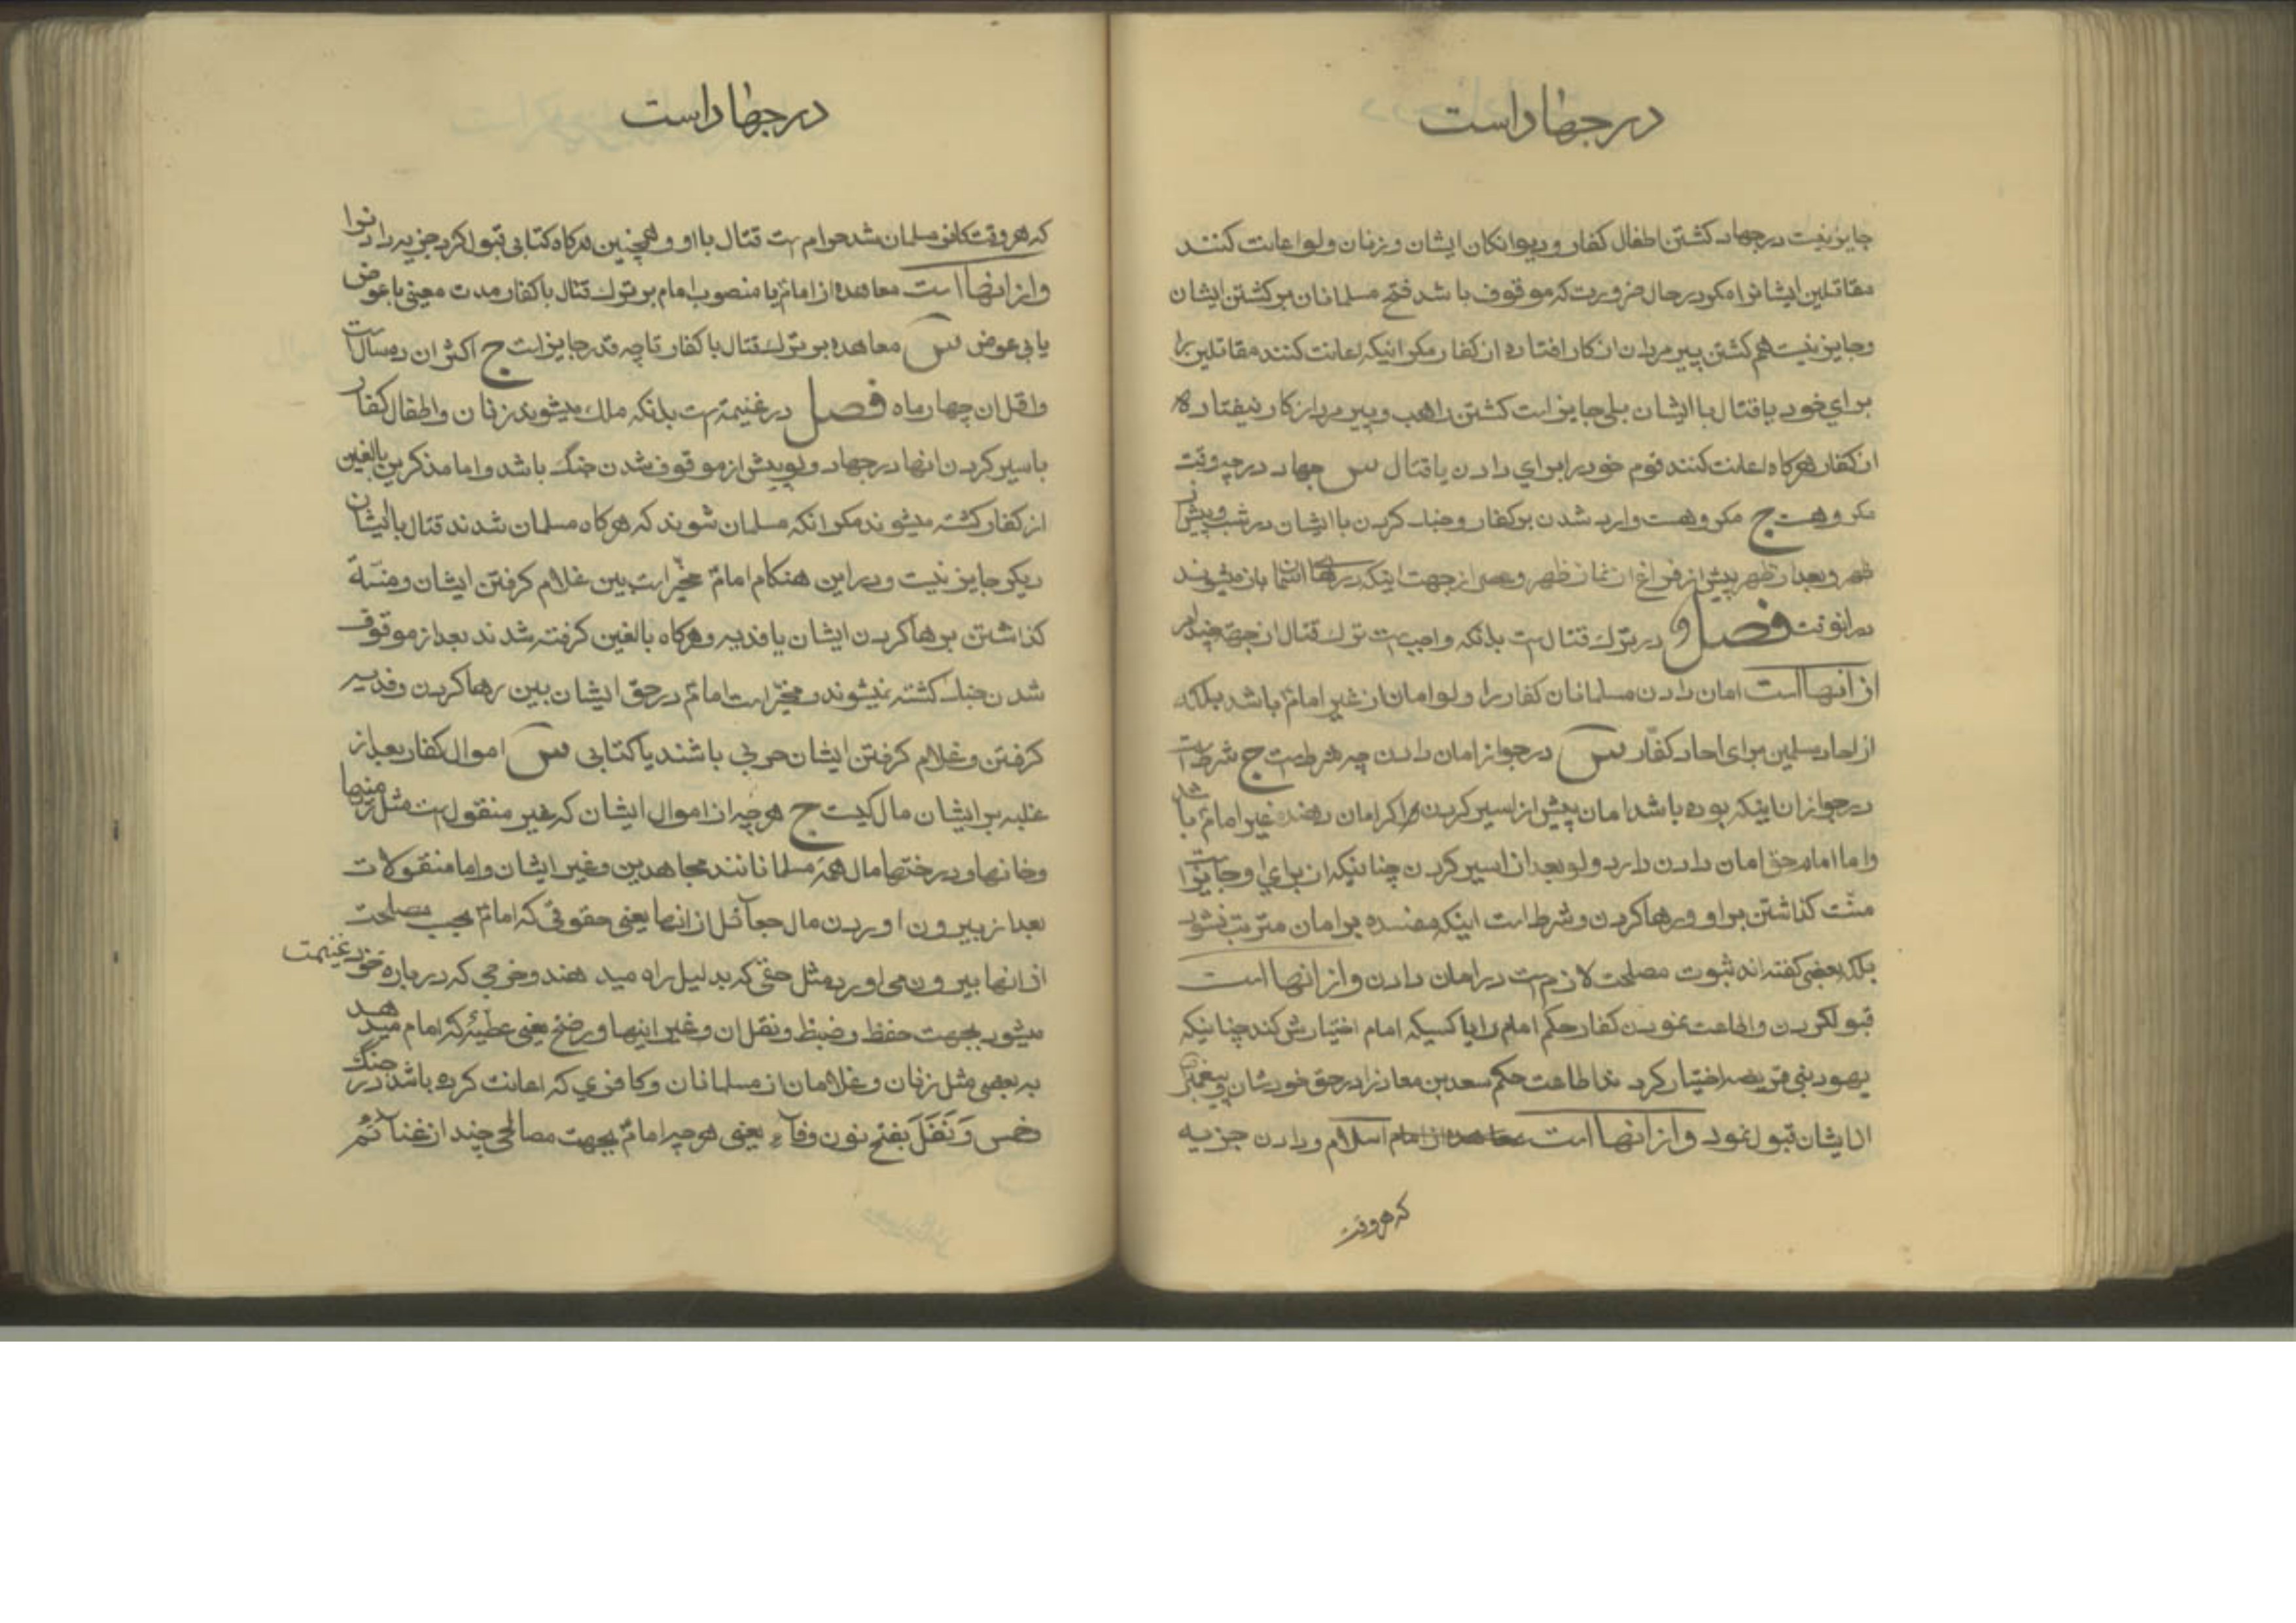 در جهاد است
جایز نیست در جهاد کشتن اطفال کفار و دیوانکان ایشان و زنان ولو اعانت کنند
مقاتلین ایشانرا مکر در حال ضرورت که موقوف باشد فتح مسلمانان بر کشتن ایشان
و جایز نیست هم کشتن پیر مردان از کار افتاده از کفار مکر اینکه اعانت کنند مقاتلین را
برای خود یا قتال با ایشان بلی جایز است کشتن راهب و پیر مرد از کار نیفتاده
از کفار هرکاه اعانت کنند قوم خود را برای دادن یا قتال س جهاد در چه وقت
مکروهست ج مکروهست وارد شدن بر کفار و جنک کردن با ایشان در شب و پیش از
ظهر و بعد از ظهر پیش از فراغ از نماز ظهر و عصر از جهت اینکه درهای آسمان باز میشوند
در انوقت فصل در ترک قتال است بدانکه واجب است ترک قتال از جهة چند امر
از انها است امان دادن مسلمانان کفار را ولو امان از غیر امام باشد بلکه
از احاد مسلمین برای احاد کفّار س در جواز امان دادن چه شرطست ج شرط است
در جواز ان اینکه بوده باشد امان پیش از اسیر کردن اکر امان دهنده غیر امام باشد
و اما امام حق امان دادن دارد ولو بعد از اسیر کردن چنانیکه از برای او جایز است
منّت کذاشتن بر او و رها کردن و شرط است اینکه مفسده بر امان مترتب نشود
بلکه بعضی کفته اند ثبوت مصلحت لازم است در امان دادن و از انها است
قبول کردن و اطاعت نمودن کفار حکم امام را یا کسیکه امام اختیارش کند چنانیکه
یهود بنی قریضه اختیار کردند اطاعت حکم سعد بن معاذ را در حق خودشان و پیغمبر
از ایشان قبول نمود و از انها است اسلام و دادن جزیه
که هر وقت
در جهاد است
که هر وقت کافر مسلمان شد حرام است قتال با او و همچنین هرکاه کتابی قبول کرد جزیه دادنرا
و از انها است معاهده از امام یا منصوب امام بر ترک قتال با کفار مدت معینی با عوض
یا بی عوض س معاهده بر ترک قتال با کفار تا چه قدر جایز است ج اکثر ان ده سال است
و اقل ان چهار ماه فصل در غنیمة است بدانکه ملک میشوند زنان و اطفال کفار
باسیر کردن انها در جهاد ولو پیش از موقوف شدن جنک باشد و اما مذکرین بالغین
از کفار کشته میشوند مکر انکه مسلمان شوند که هرکاه مسلمان شدند قتال با ایشان
دیکر جایز نیست و در این هنکام امام مخیّر است بین غلام کرفتن ایشان و منّة
کذاشتن برها کردن ایشان یا فدیه و هرکاه بالغین کرفته شدند بعد از موقوف
شدن جنک کشته نمیشوند و مخیّر است امام در حق ایشان بین رها کردن و فدیه
کرفتن و غلام کرفتن ایشان حربی باشند یا کتابی س اموال کفار بعد از
غلبه بر ایشان مال کیست ج هرچه از اموال ایشان که غیر منقول است مثل زمینها
و خانها و درختها مال همهٔ مسلمانانند مجاهدین و غیر ایشان و اما منقولات
بعد از بیرون اوردن مال جعآئل از انها یعنی حقوقی که امام بحسب مصلحت
از انها بیرون می اورد مثل حقی که بدلیل راه میدهند و خرجی که در باره خود غنیمت
میشود بجهت حفظ و ضبط و نقل ان و غیر اینها و رضخ یعنی عطیّهٔ که امام میدهد
به بعضی مثل زنان و غلامان از مسلمانان و کافری که اعانت کرده باشد در جنک
خمس وَ نَفَل بفتح نون و فآء یعنی هرچه امام بجهت مصالحی چند از غنآئم